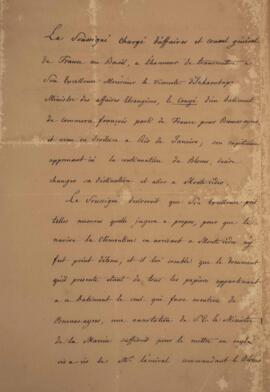 Le Soussigné chargé d'affaires et consul général
de France au Brésil, a l'honneur de transmettre à
Son Excellence Monsieur le Vicomte d'Itabayana
Ministre des affaires étrangères, le Congé d'un batiment
de commerce français, parti de France pour Buenos-ayres,
et venu en droiture à Rio de Janeiro, son capitaine
apprenant ici la continuation du Blocus, désire
changer sa destination et aller à Monte-video.
Le Soussigné desirerait que Son Excellence prit
telles mesures qu'elle jugera à propos, pour que le
navire la Clémentine en arrivant à Monte-video n'y
fut point détenu, et il lui semble que le document
qu'il presente étant de tous les papiers appartenant
à ce batiment le seul qui fasse mention de
Buenos-ayres, une annotation de S. E. le Ministre
de la Marine suffirait pour le mettre en règle
vis-à-vis de Mr. l'amiral commandant le Blocus